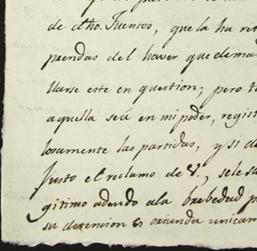 de dho. Fuentes, que la ha
prendas del haver que dema
llarse este en question; pero
aquella sea en mi poder, regist
losamente las partidas, y si
Justo el reclamo de V., sele
gitimo adeudo ala brebedad p
su detencion es oriunda unicam